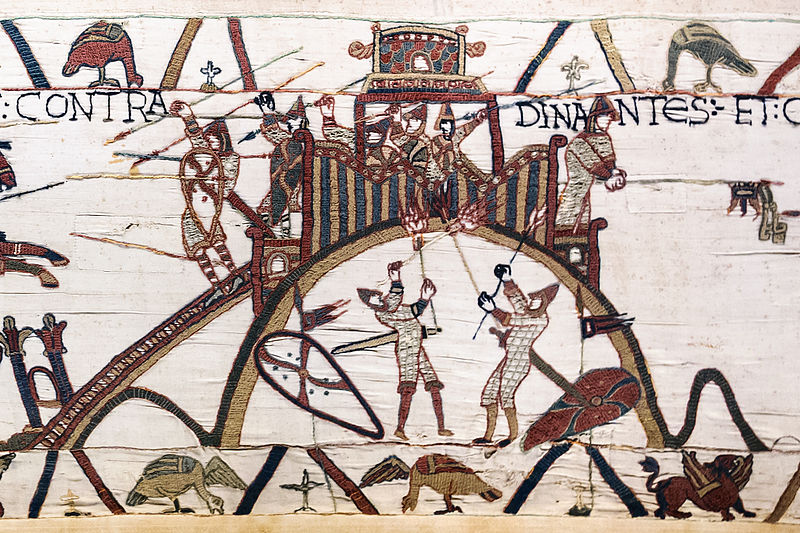 : CONTRA DINANTES: ET: C